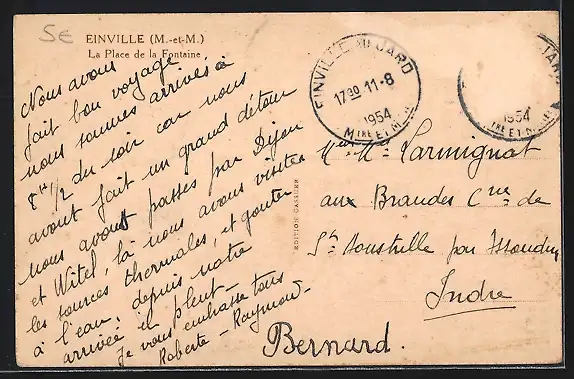 5€
EINVILLE (M.-et-M.)
La Place de la Fontaine
Nous avons
fait bon voyage
nous sommes arrivés à
8 H 1/2 du soir car nous
avont fait un grand détour
nous avont passés par Dijon
et Witel, là nous avons visiter
les sources thermales, et gouter
à l'eau, depuis notre
arrivée il pleut -
Je vous embrasse tous
Roberte - Raymond -
EINVILLE AU JARD
17 30 11-8
1954
MTHE ET MLLE
JARD
1954
THE ET MLLE
EDITION GASNIER
Mr Larmignat
aux Brandes Cne de
St Aoustrille par Issoudun
Indre
Bernard.